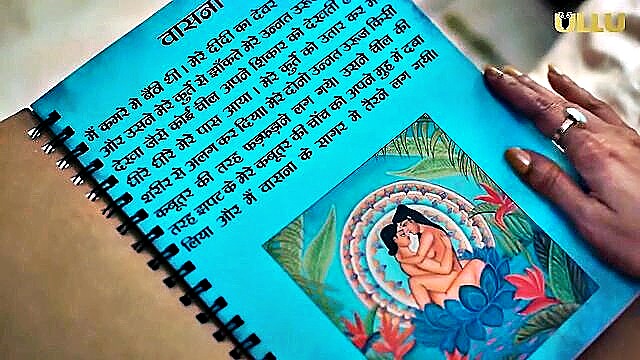 वासना
में कमरे में बैठी थी। मेरे दीदी का देवर
और उसने मेरे कुर्ते से झाँकते मेरे उन्नत उरोज
देखा जैसे कोई चील अपने शिकार को देखती
धीरे धीरे मेरे पास आया। मेरे कुर्ते को उतार कर मे
शरीर से अलग कर दिया। मेरे दोनों उन्नत उरोज किसी
कबूतर की तरह फड़फड़ाने लग गये। उसने चील की
तरह झपट के मेरे कबूतर की चोंच को अपने मुह में दबा
लिया और में वासना के सागर में तैरने लग गयी।
ULLU